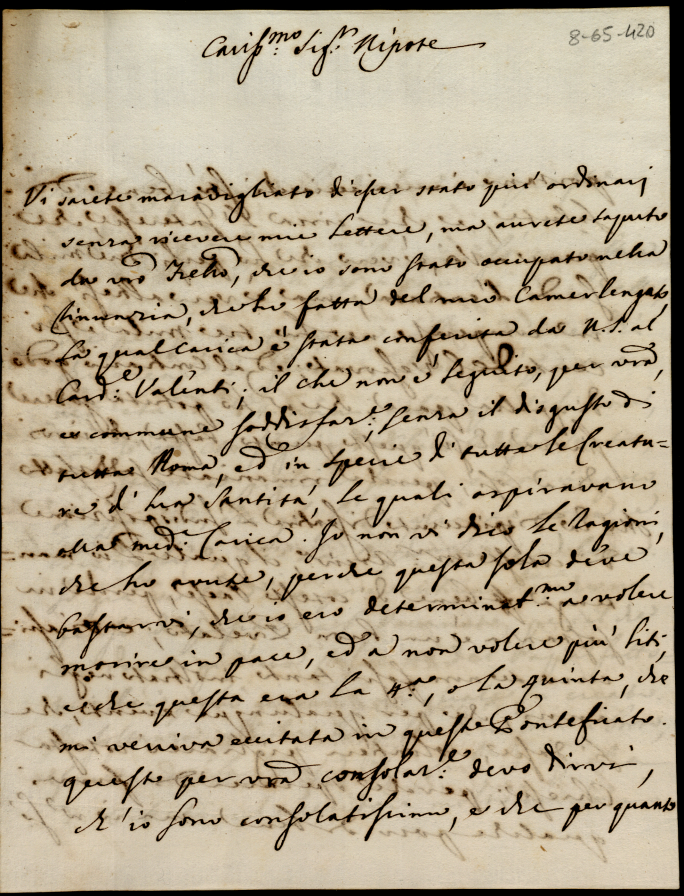 8-65-420
Cariss.mo Sig.r Nipote
Vi sarete maravigliato d'esser stato più ordinarj
senza ricevere mie Lettere, ma avrete saputo
da vr̃o Frello, che io sono stato occupato nella
rinunzia, che hò fatta del mio Camerlengato,
la qual carica è stata conferita da N.S. al
Card.e Valenti; il che non è seguito, per vr̃a,
e commune soddisfaz.e, senza il disgusto di
tutta Roma, ed in specie di tutte le Creatu=
re di Sua Santità, le quali aspiravano
alla med.a Carica. Io non vi dico le ragioni,
che ho avute, perche questa sola deve
bastarvi, che io ero determinat.mo a volere
morire in pace, ed a non volere più liti,
e che questa era la 4.a, o la quinta, che
mi veniva eccitata in questo Pontificato.
questo per vr̃a consolaz.e devo dirvi,
ch'io sono consolatissimo, e che per quanto